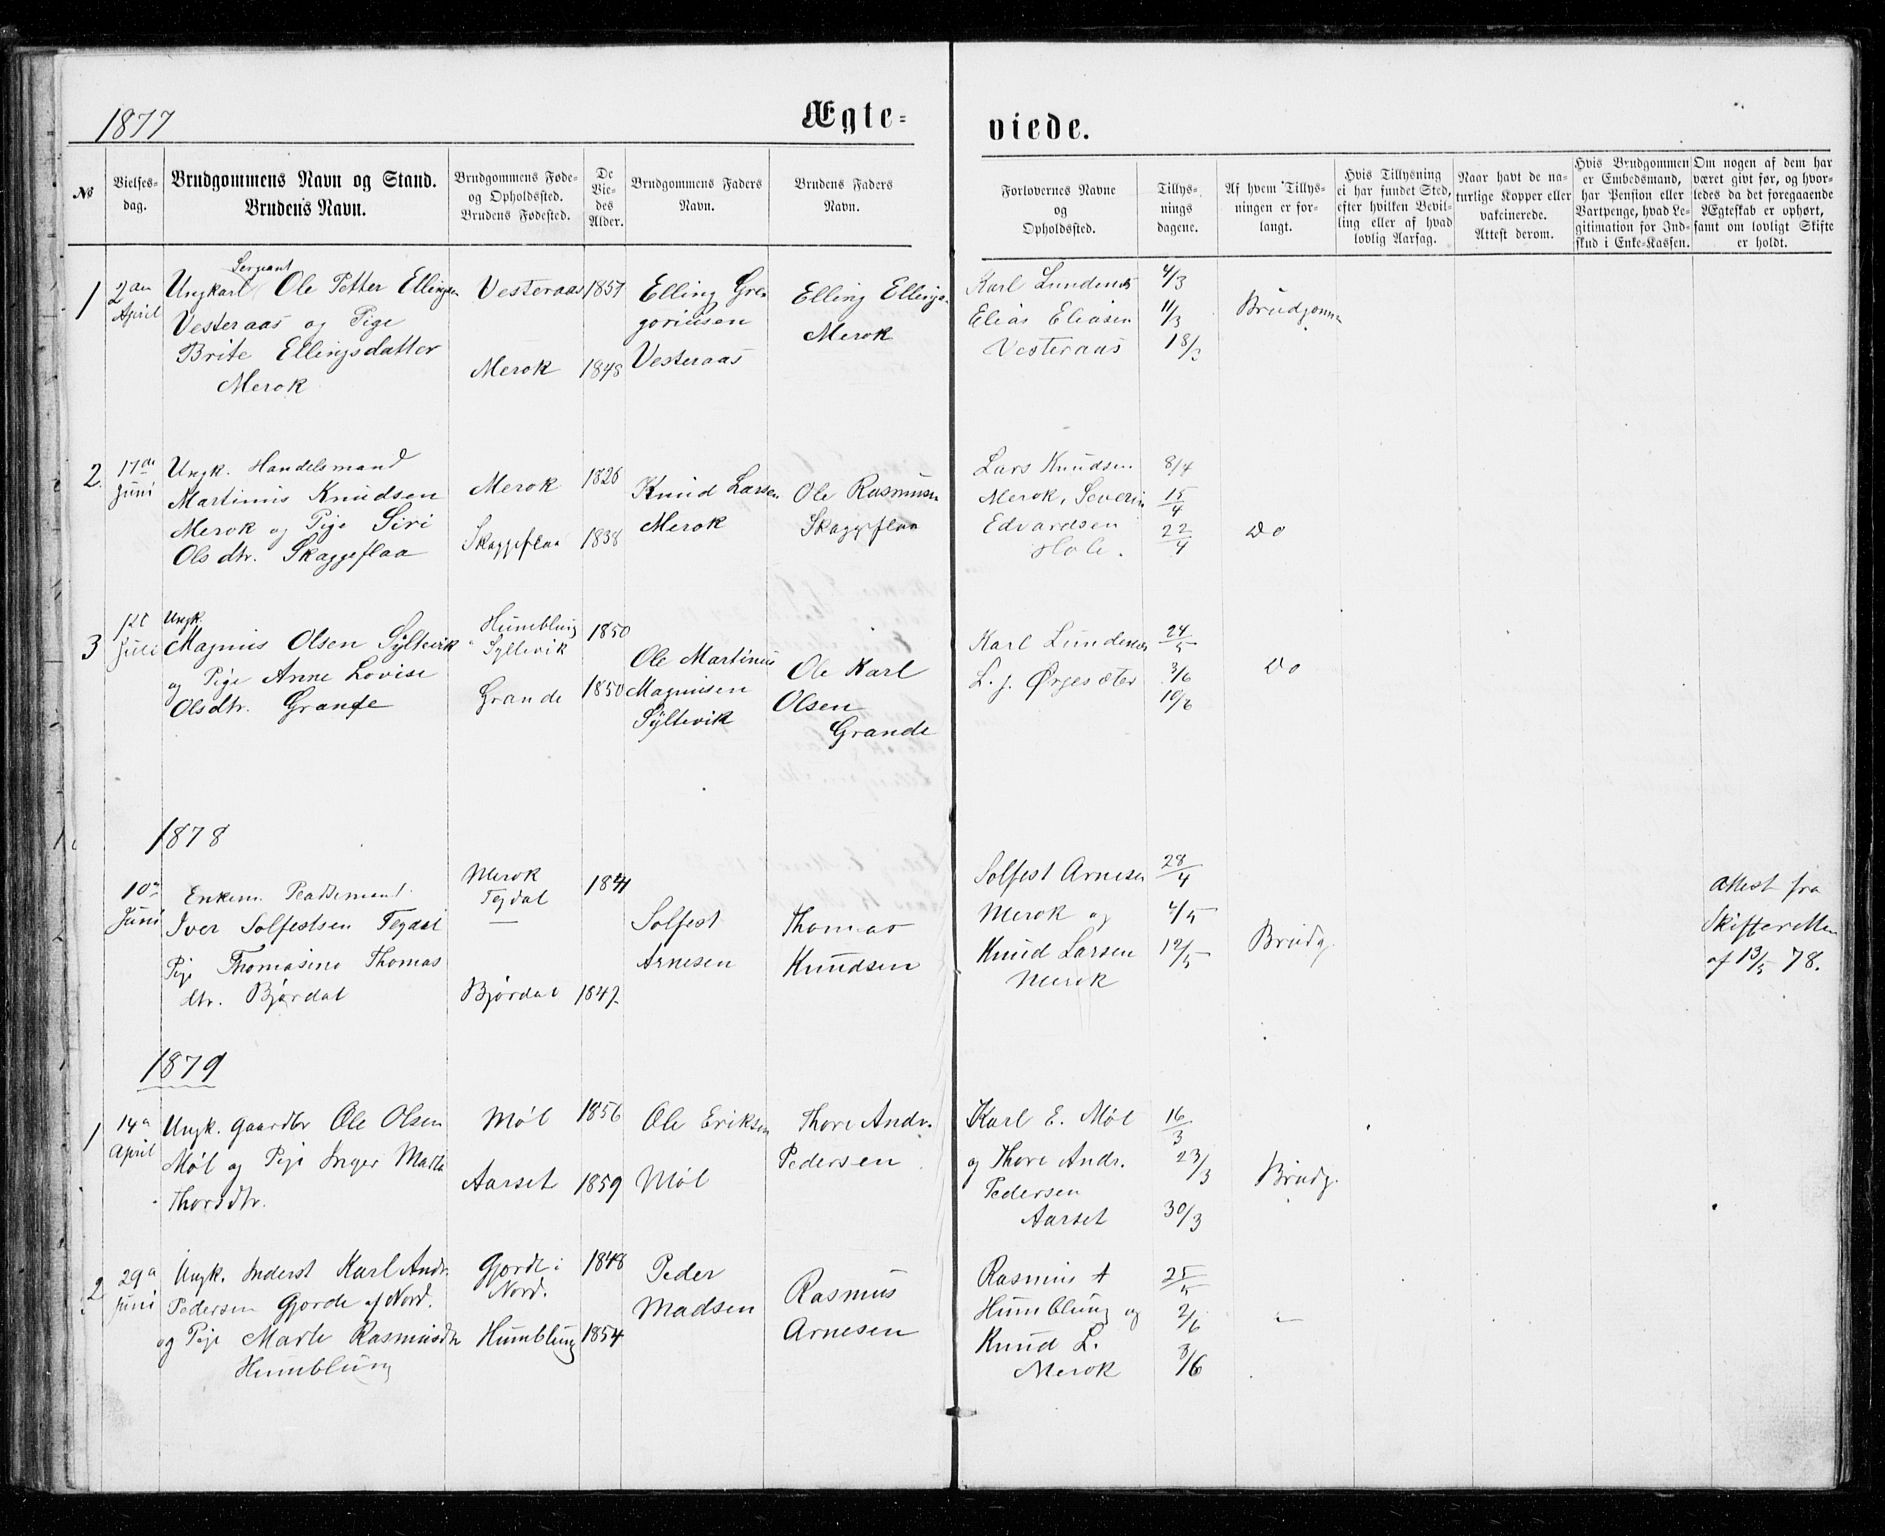 1877
Ægte-
viede.
№
Vielses-
dag.
Brudgommens Navn og Stand.
Brudens Navn.
Brudgommens Føde-
og Opholdssted.
Brudens Fødested.
De
Vie-
des
Alder.
Brudgommens Faders
Navn.
Brudens Faders
Navn.
Forlovernes Navne
og
Opholdssted.
Tillys-
nings
dagene.
Af hvem Tillys-
ningen er for-
langt.
Hvis Tillysning
ei har fundet Sted,
efter hvilken Bevil-
ling eller af hvad
lovlig Aarsag.
Naar havt de na-
turlige Kopper eller
vakcinerede.
Attest derom.
Hvis Brudgommen
er Embedsmand,
har Pension eller
Vartpenge, hvad Le-
gitimation for Ind-
skud i Enke-Kassen.
Om nogen af dem har
været givt før, og hvor-
ledes da det foregaaende
Ægteskab er ophørt,
samt om lovligt Skifte
er holdt.
1
2den
April
Sergeant
Ungkarl Ole Petter Ellingsen
Vesteraas og Pige
Brite Ellingsdatter
Merok
Vesteraas
Merok
1851
1848
Elling Gre-
goriusen
Vesteraas
Elling Ellings.
Merok
Karl Lundenes
Elias Eliasen
Vesteraas
4/3
11/3
18/3
Brudgommen
2
17de
Juni
Ungk. Handelsmand
Martinus Knudsen
Merok og Pige Siri
Olsdtr. Skaggeflaa
Merok
Skaggeflaa
1826
1838
Knud Larsen
Merok
Ole Rasmusen
Skaggeflaa
Lars Knudsen
Merok, Severin
Edvardsen
Hole.
8/4
15/4
22/4
Do
3
1ste
Juli
Ungk.
Magnus Olsen Syltevik
og Pige Anne Lovise
Olsdtr. Grande
Humblung
Syltevik
Grande
1850
1850
Ole Martinus
Magnusen
Syltevik
Ole Karl
Olsen
Grande
Karl Lundenes
L. J. Ørgesæter
24/5
3/6
10/6
Do
1878
10de
Juni
Enkem.
Iver Solfestsen Fegdal
Pige Thomasine Thomas
dtr. Bjørdal
Merok
Fegdal
Bjørdal
1841
1842
Solfest
Arnesen
Thomas
Knudsen
Solfest Arnesen
Merok og
Knud Larsen
Merok
28/4
4/5
12/5
Brudg.
Attest fra
Skifteretten
af 13/5 78.
1879
1
14a
April
Ungk. Gaardbr Ole Olsen
Møl og Pige Inger Marte
Thorsdtr.
Møl
Aarset
1856
1859
Ole Eriksen
Møl
Thore Andr.
Pedersen
Karl E. Møl
og Thore Andr.
Pedersen
Aarset
16/3
23/3
30/3
Brudg.
2
29a
Juni
Ungk. Inderst Karl Andr.
Pedersen Gjorde af Nord.
og Pige Marte Rasmusdtr
Humblung
Gjorde i
Nord.
Humblung
1848
1854
Peder
Madsen
Rasmus
Arnesen
Rasmus A
Humblung og
Knud L.
Merok
25/5
2/6
8/6